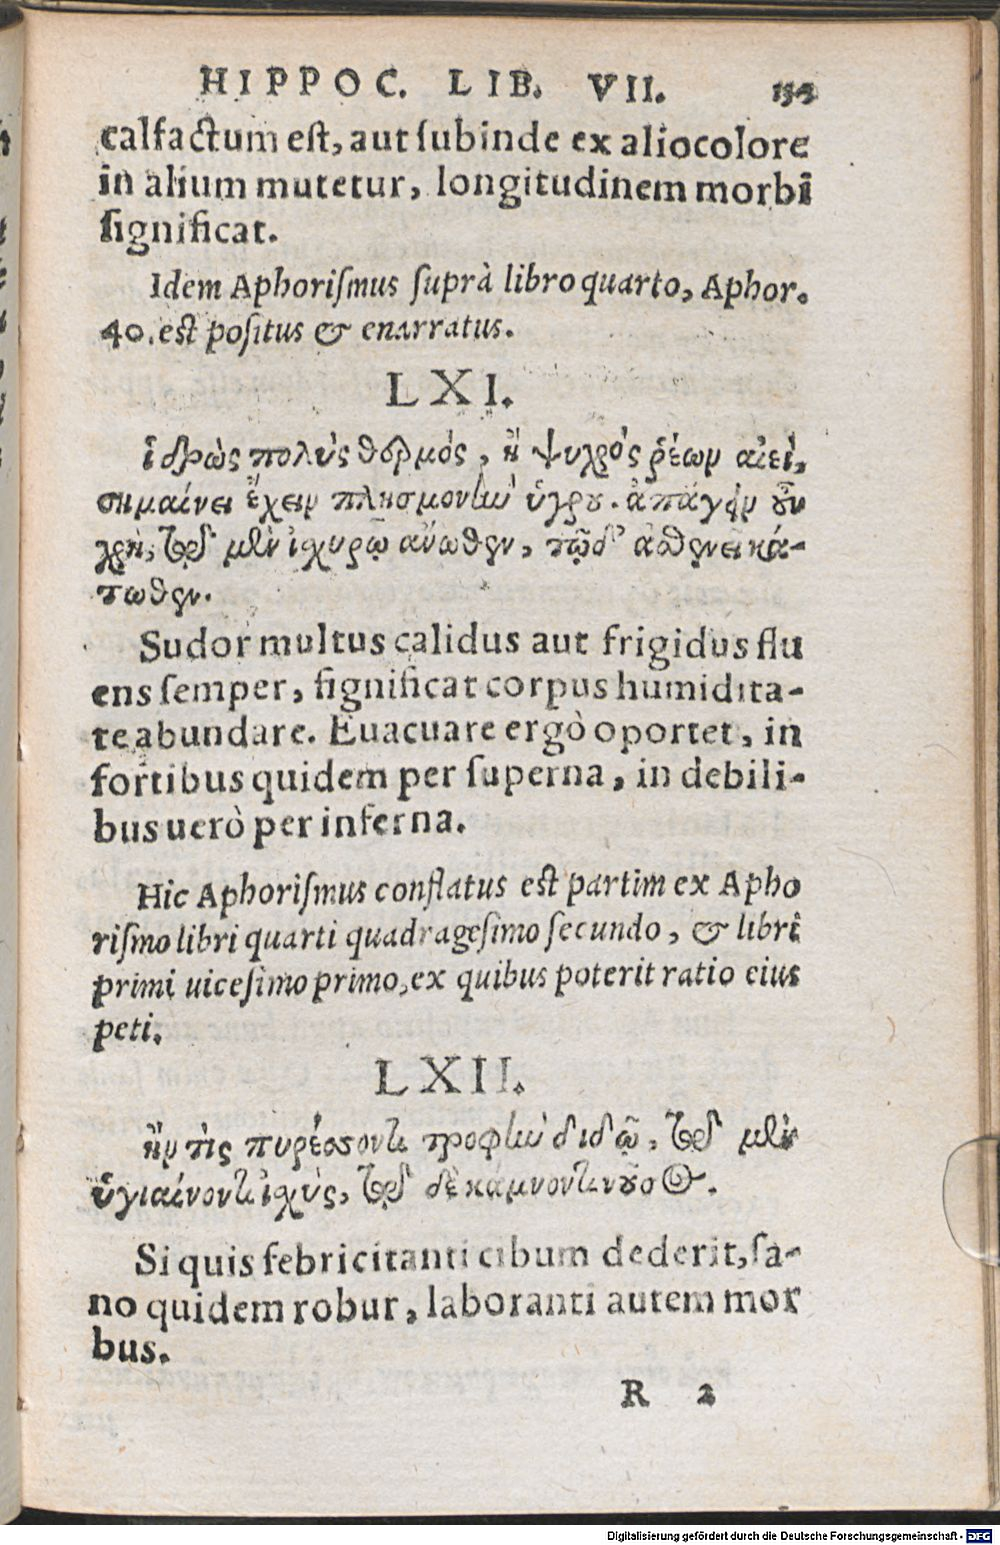 HIPPOC. LIB. VII. 134
calfactum est, aut subinde ex alio colore
in alium mutetur, longitudinem morbi
significat.
Idem Aphorismus suprà libro quarto, Aphor.
40. est positus & enarratus.
LXI.
ἱδρὼς πολὺς θερμός, ἢ ψυχρὸς ῥέων αἰεὶ,
σημαίνει ἔχειν πλησμονὴν ὑγροῦ. ἀπάγειν οὖν
χρὴ, τῷ μὲν ἰσχυρῷ ἄνωθεν, τῷ δ' ἀσθενεῖ κά-
τωθεν.
Sudor multus calidus aut frigidus flu
ens semper, significat corpus humidita-
te abundare. Euacuare ergò oportet, in
fortibus quidem per superna, in debili-
bus uerò per inferna.
Hic Aphorismus conflatus est partim ex Apho
rismo libri quarti quadragesimo secundo, & libri
primi uicesimo primo, ex quibus poterit ratio eius
peti.
LXII.
ἤν τὶς πυρέσσοντι τροφὴν διδῷ, τῷ μὲν
ὑγιαίνοντι ἰσχὺς, τῷ δὲ κάμνοντι νοῦσος.
Si quis febricitanti cibum dederit, sa-
no quidem robur, laboranti autem mor
bus.
R 2
Digitalisierung gefördert durch die Deutsche Forschungsgemeinschaft - DFG